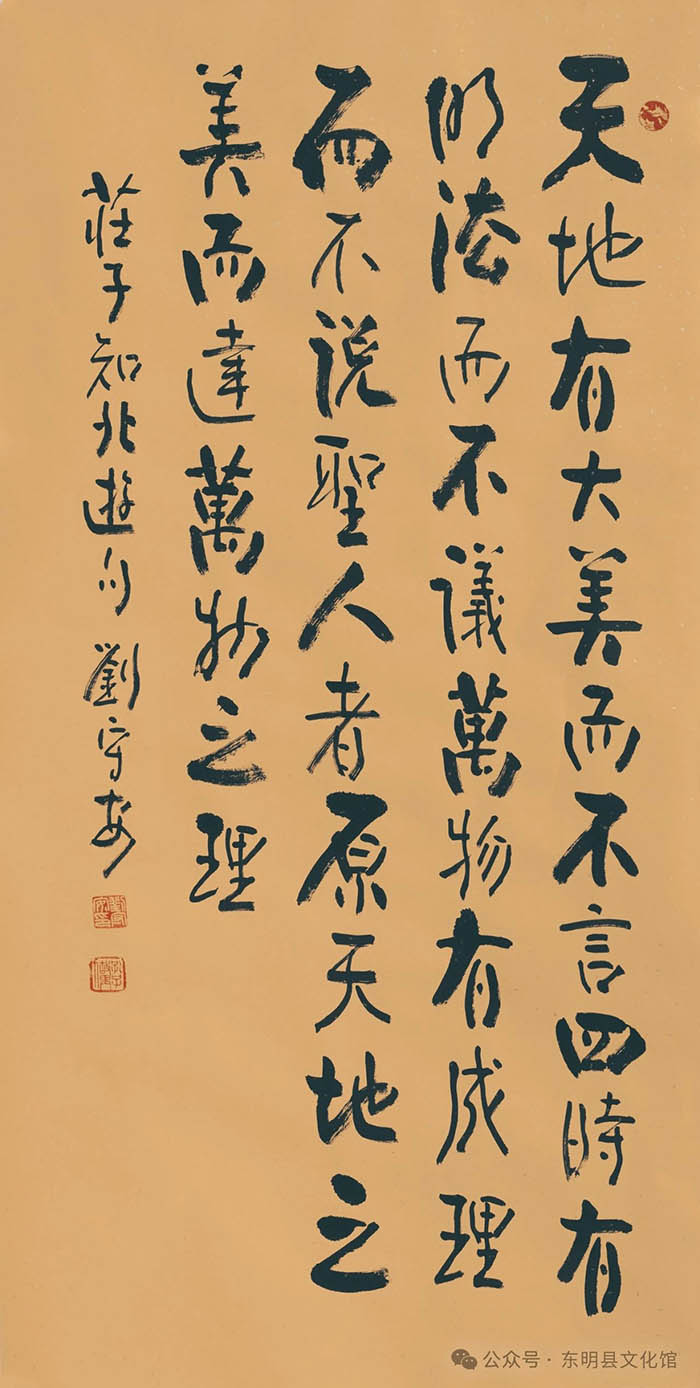 天地有大美而不言四時有
明法而不議萬物有成理
而不说聖人者原天地之
美而達萬物之理
莊子知北遊句 劉守安
公众号·东明县文化馆